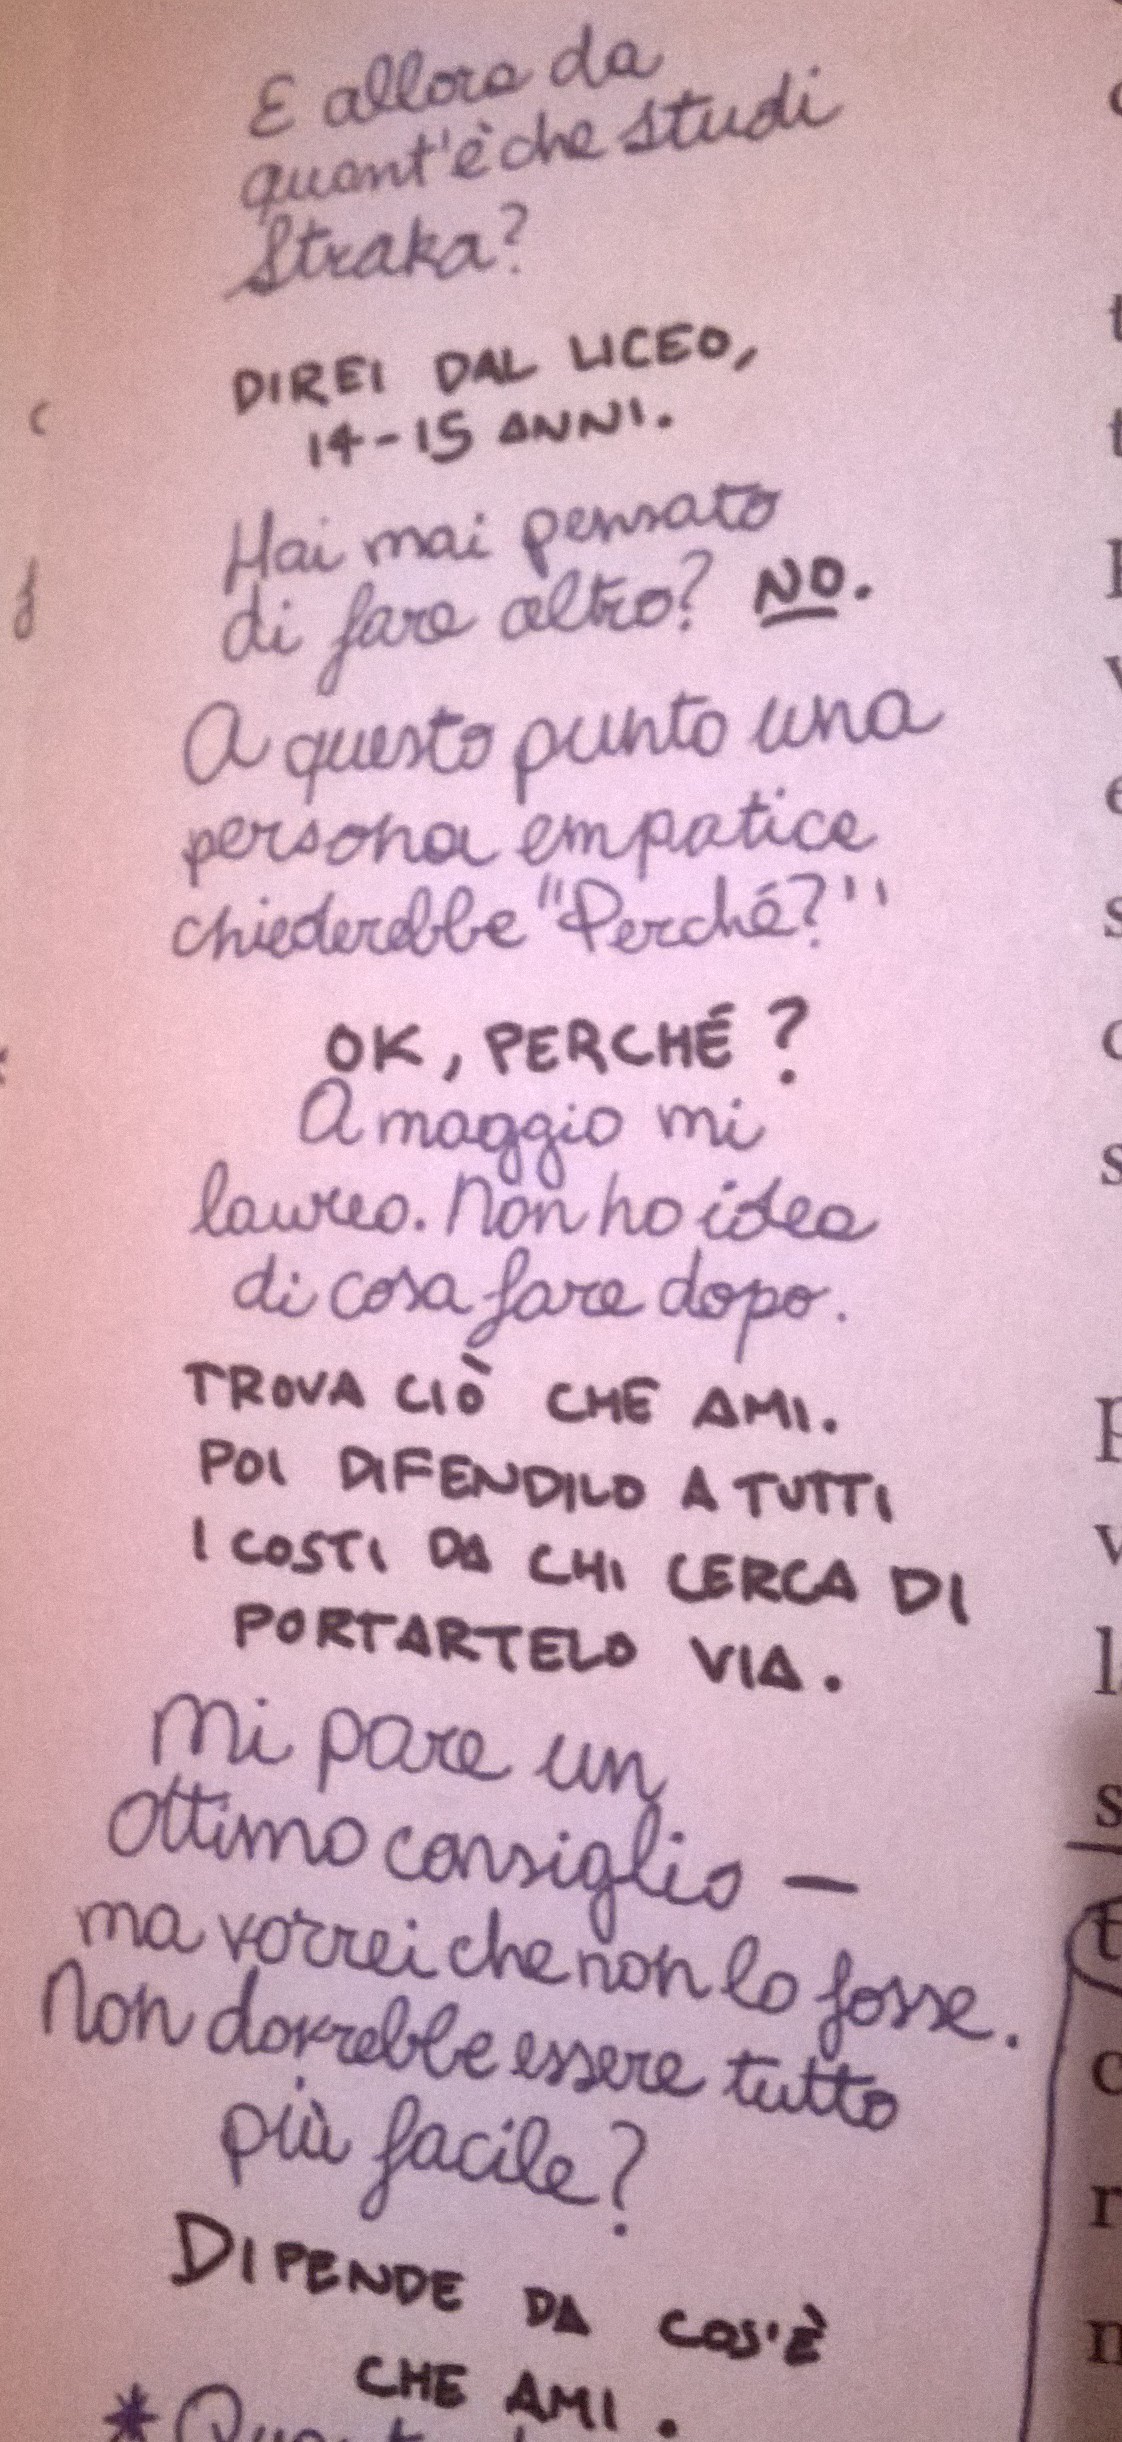 E allora da
quant'è che studi
Straka?
DIREI DAL LICEO,
14-15 ANNI.
Hai mai pensato
di fare altro? NO.
A questo punto una
persona empatica
chiederebbe "Perché?"
OK, PERCHÉ?
A maggio mi
laureo. Non ho idea
di cosa fare dopo.
TROVA CIÒ CHE AMI.
POI DIFENDILO A TUTTI
I COSTI DA CHI CERCA DI
PORTARTELO VIA.
Mi pare un
ottimo consiglio —
ma vorrei che non lo fosse.
Non dovrebbe essere tutto
più facile?
DIPENDE DA COS'È
CHE AMI.